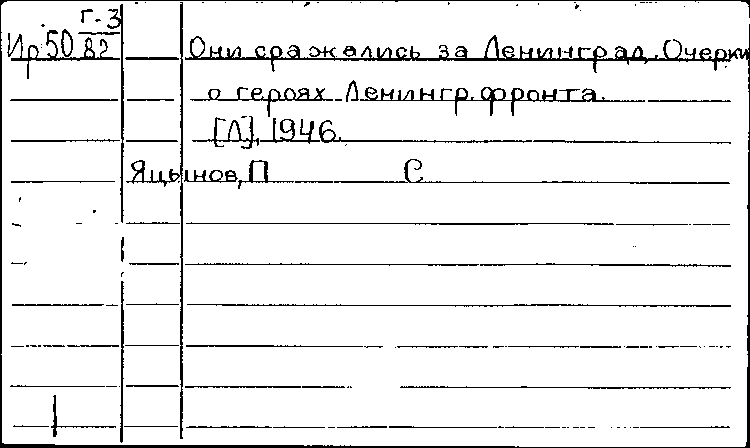 Г-3
Ир50 82 Они сражались за Ленинград. Очерки
о героях Ленингр. фронта.
[Л], 1946.
Яцынов, П С